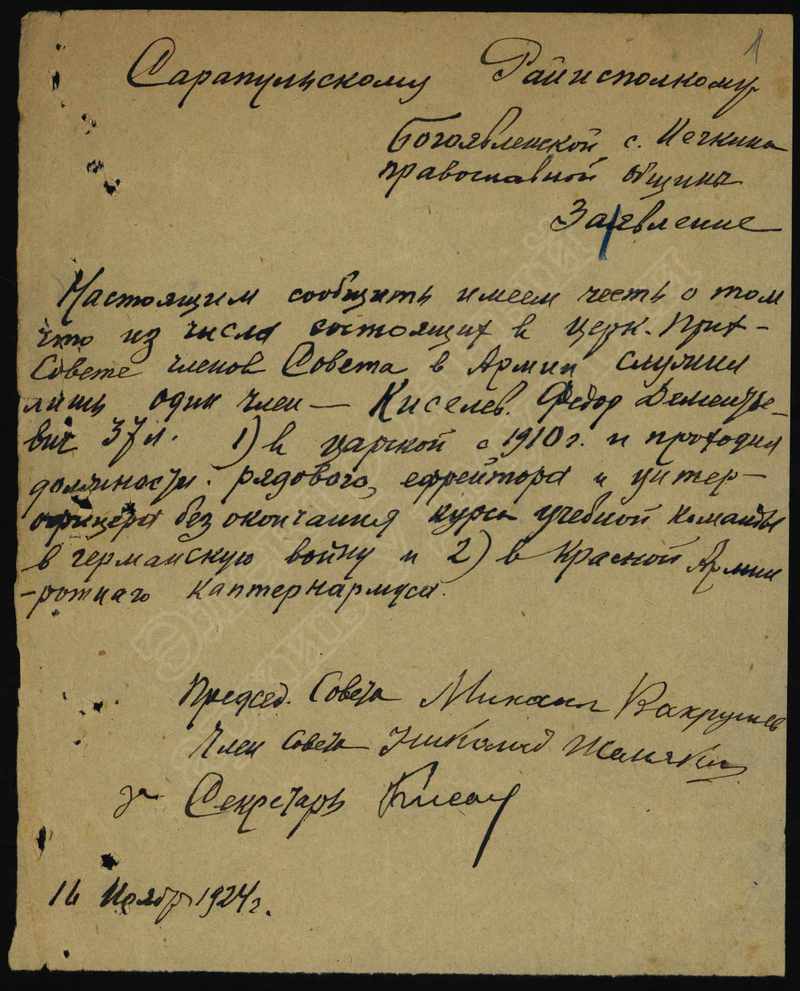 1
Сарапульскому Райисполкому
Богоявленской с. Нечкина
православной общины
Заявление
Настоящим сообщить имеем честь о том
что из числа состоящих в церк. Прих-
Совете членов Совета в Армии служил
лишь один член — Киселев. Федор Дементье-
вич 37 л. 1) в царской с 1910 г. и проходил
должности. рядового, ефрейтора и унтер-
офицера без окончания курса учебной команды
в германскую войну и 2) в Красной Армии
-ротнаго каптернармуса.
Председ. Совета Михаил Вахрушев
Член Совета Николай
за Секретарь
16 Ноябр 1924 г.